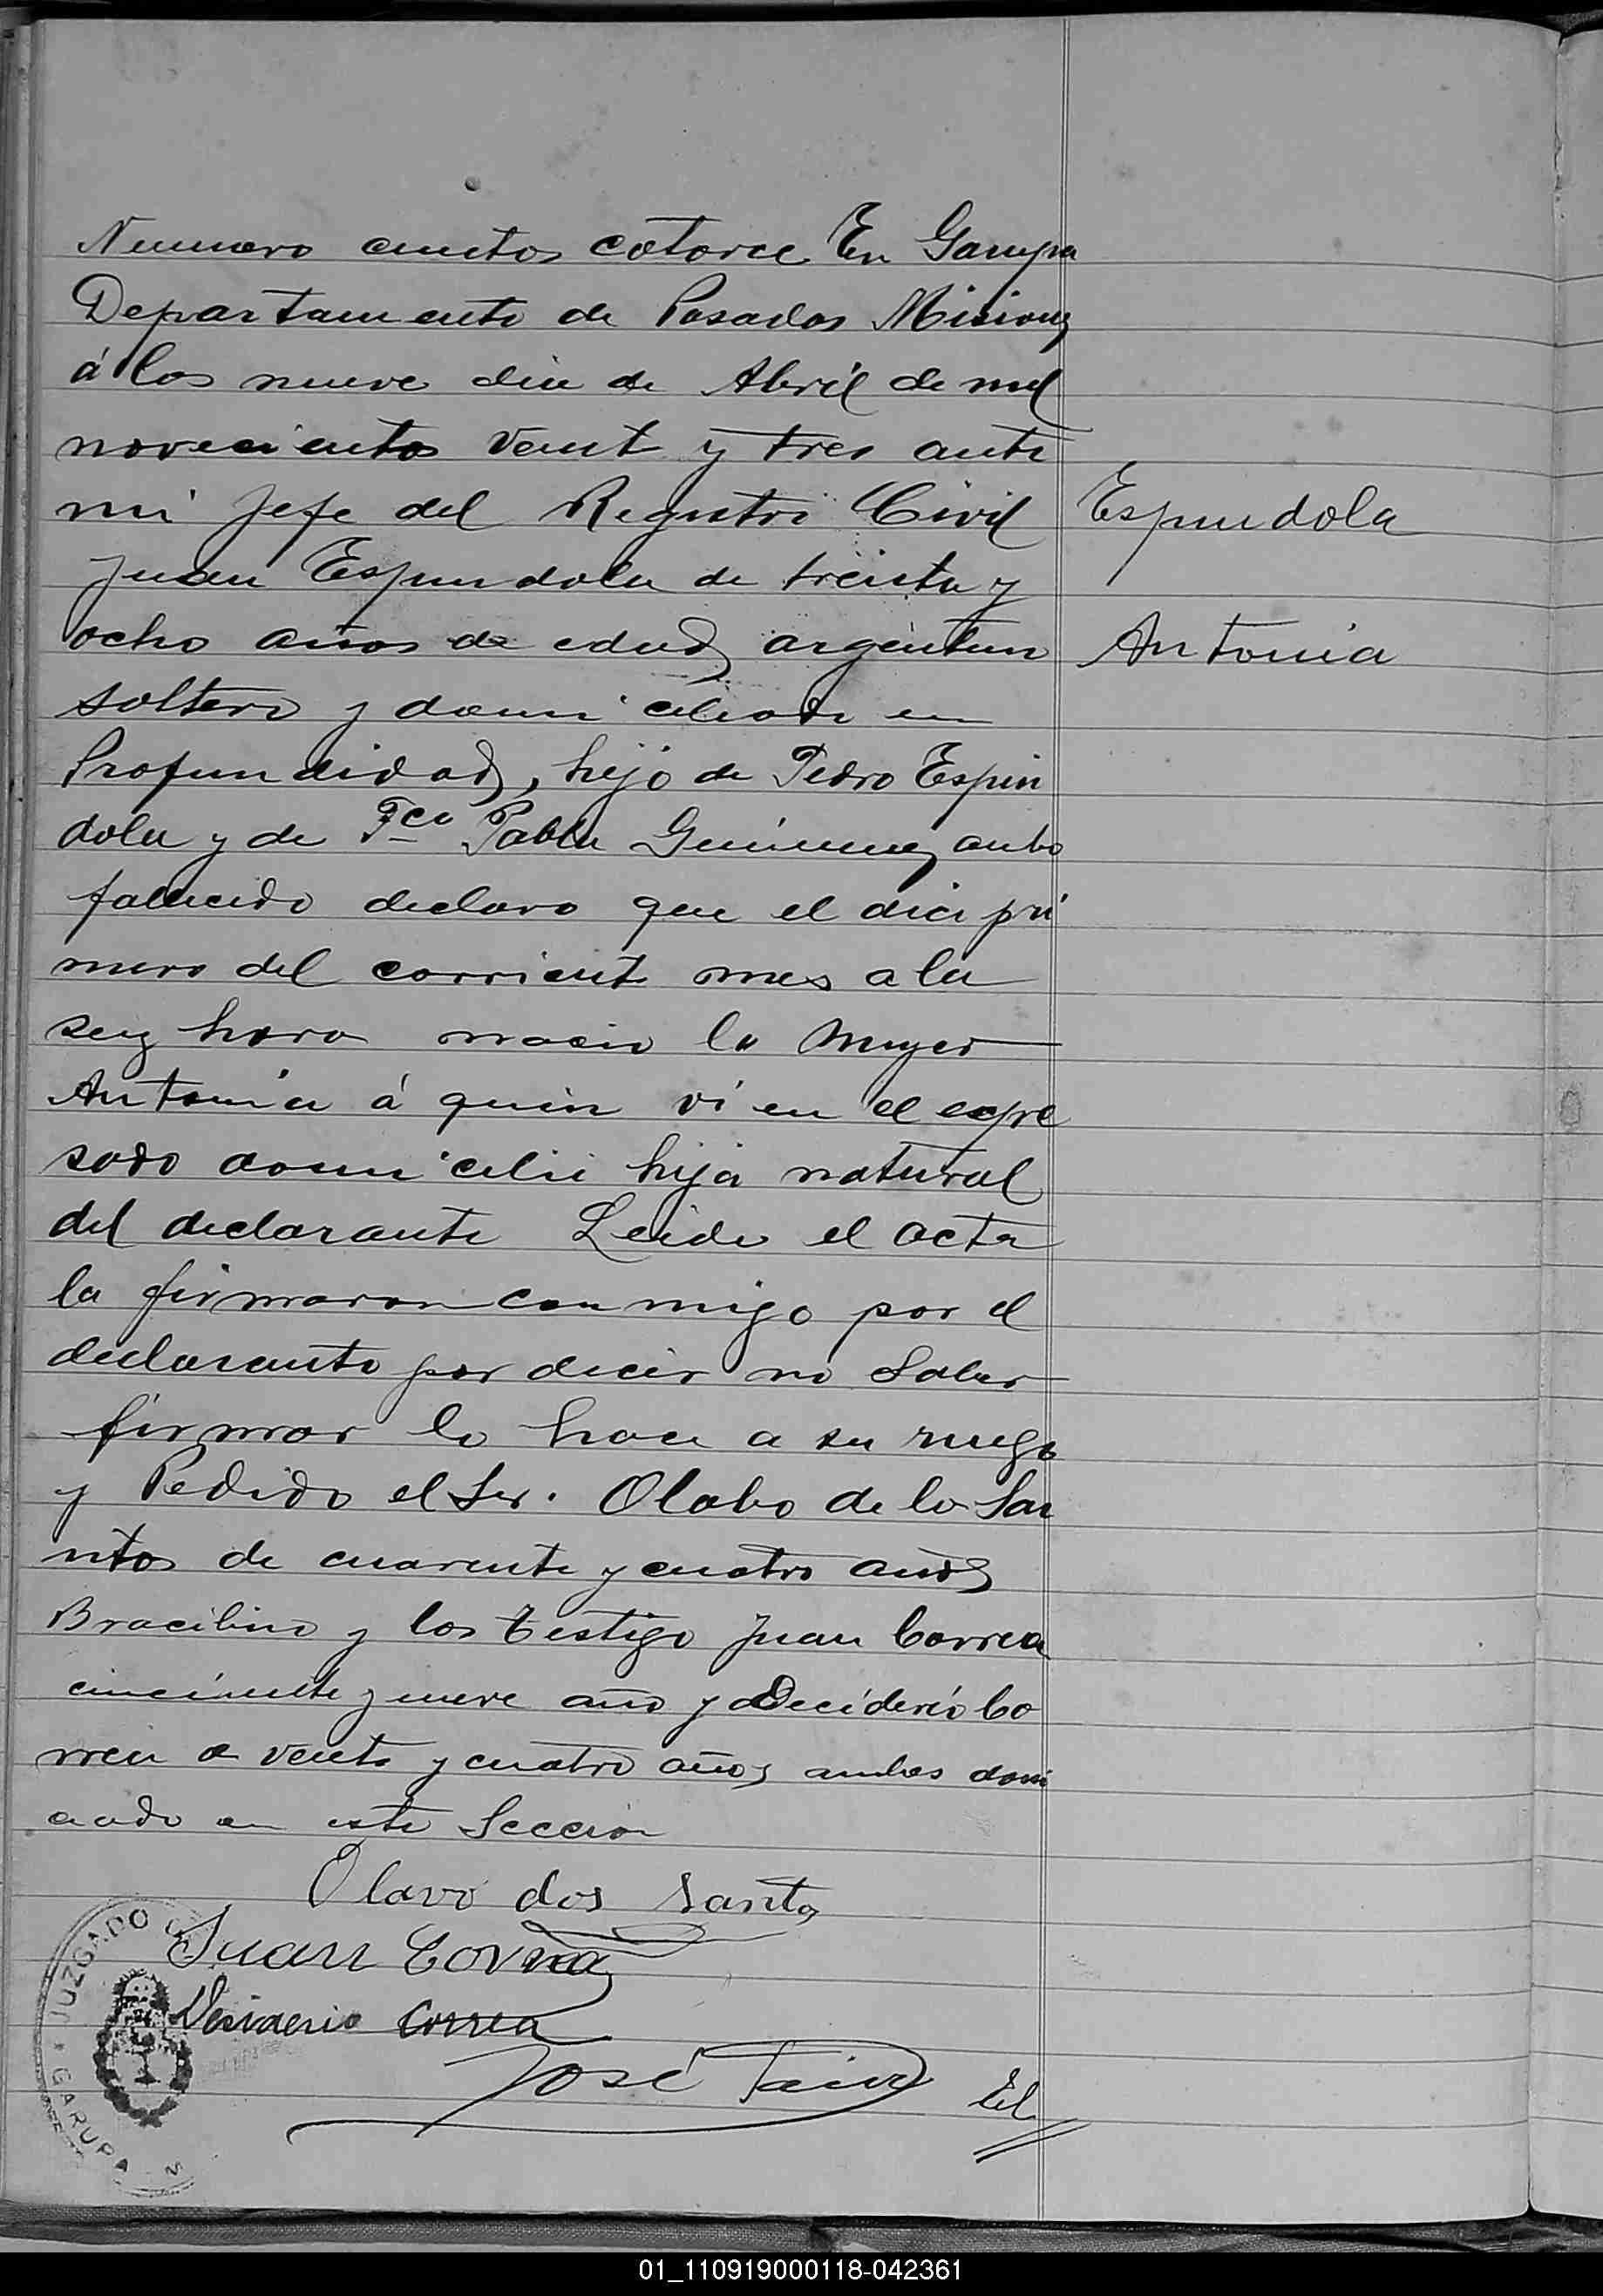 Numero cuatros catorce En Garupa
Departamento de Posadas Misiones
á los nueve dia de Abril de mil
novecientos veint y tres ante
mi Jefe del Registri Civil
Juan Espindola de treinta y
ocho años de edad, argentino
soltero y domiciliado en
Profundidad, hijo de Pedro Espin
dola y de Fca Pabla Gimenez anbo
falucido declaro que el dia pri
mero del corrient mes a la
seiz hora nacio la muger
Antonia á quien vi en el expre
sado domicilii hija natural
del declarante Leida el acta
la firmaron conmigo por el
declarante por decir no saber
firmar lo hace a su ruego
y Pedido el Ser. Olabo de lo San
ntos de cuarenta y cuatro años
Bracilino y los testigo Juan Correa
cincinuente y nueve año y Deciderio Co
rrea de vente y cuatro años ambos domi
ciado en esta Seccion
Espindola
Antonia
Olavo dos Santos
Juan Correa
Desiderio Correa
José
JUZGADO
GARUPA
01_110919000118-042361